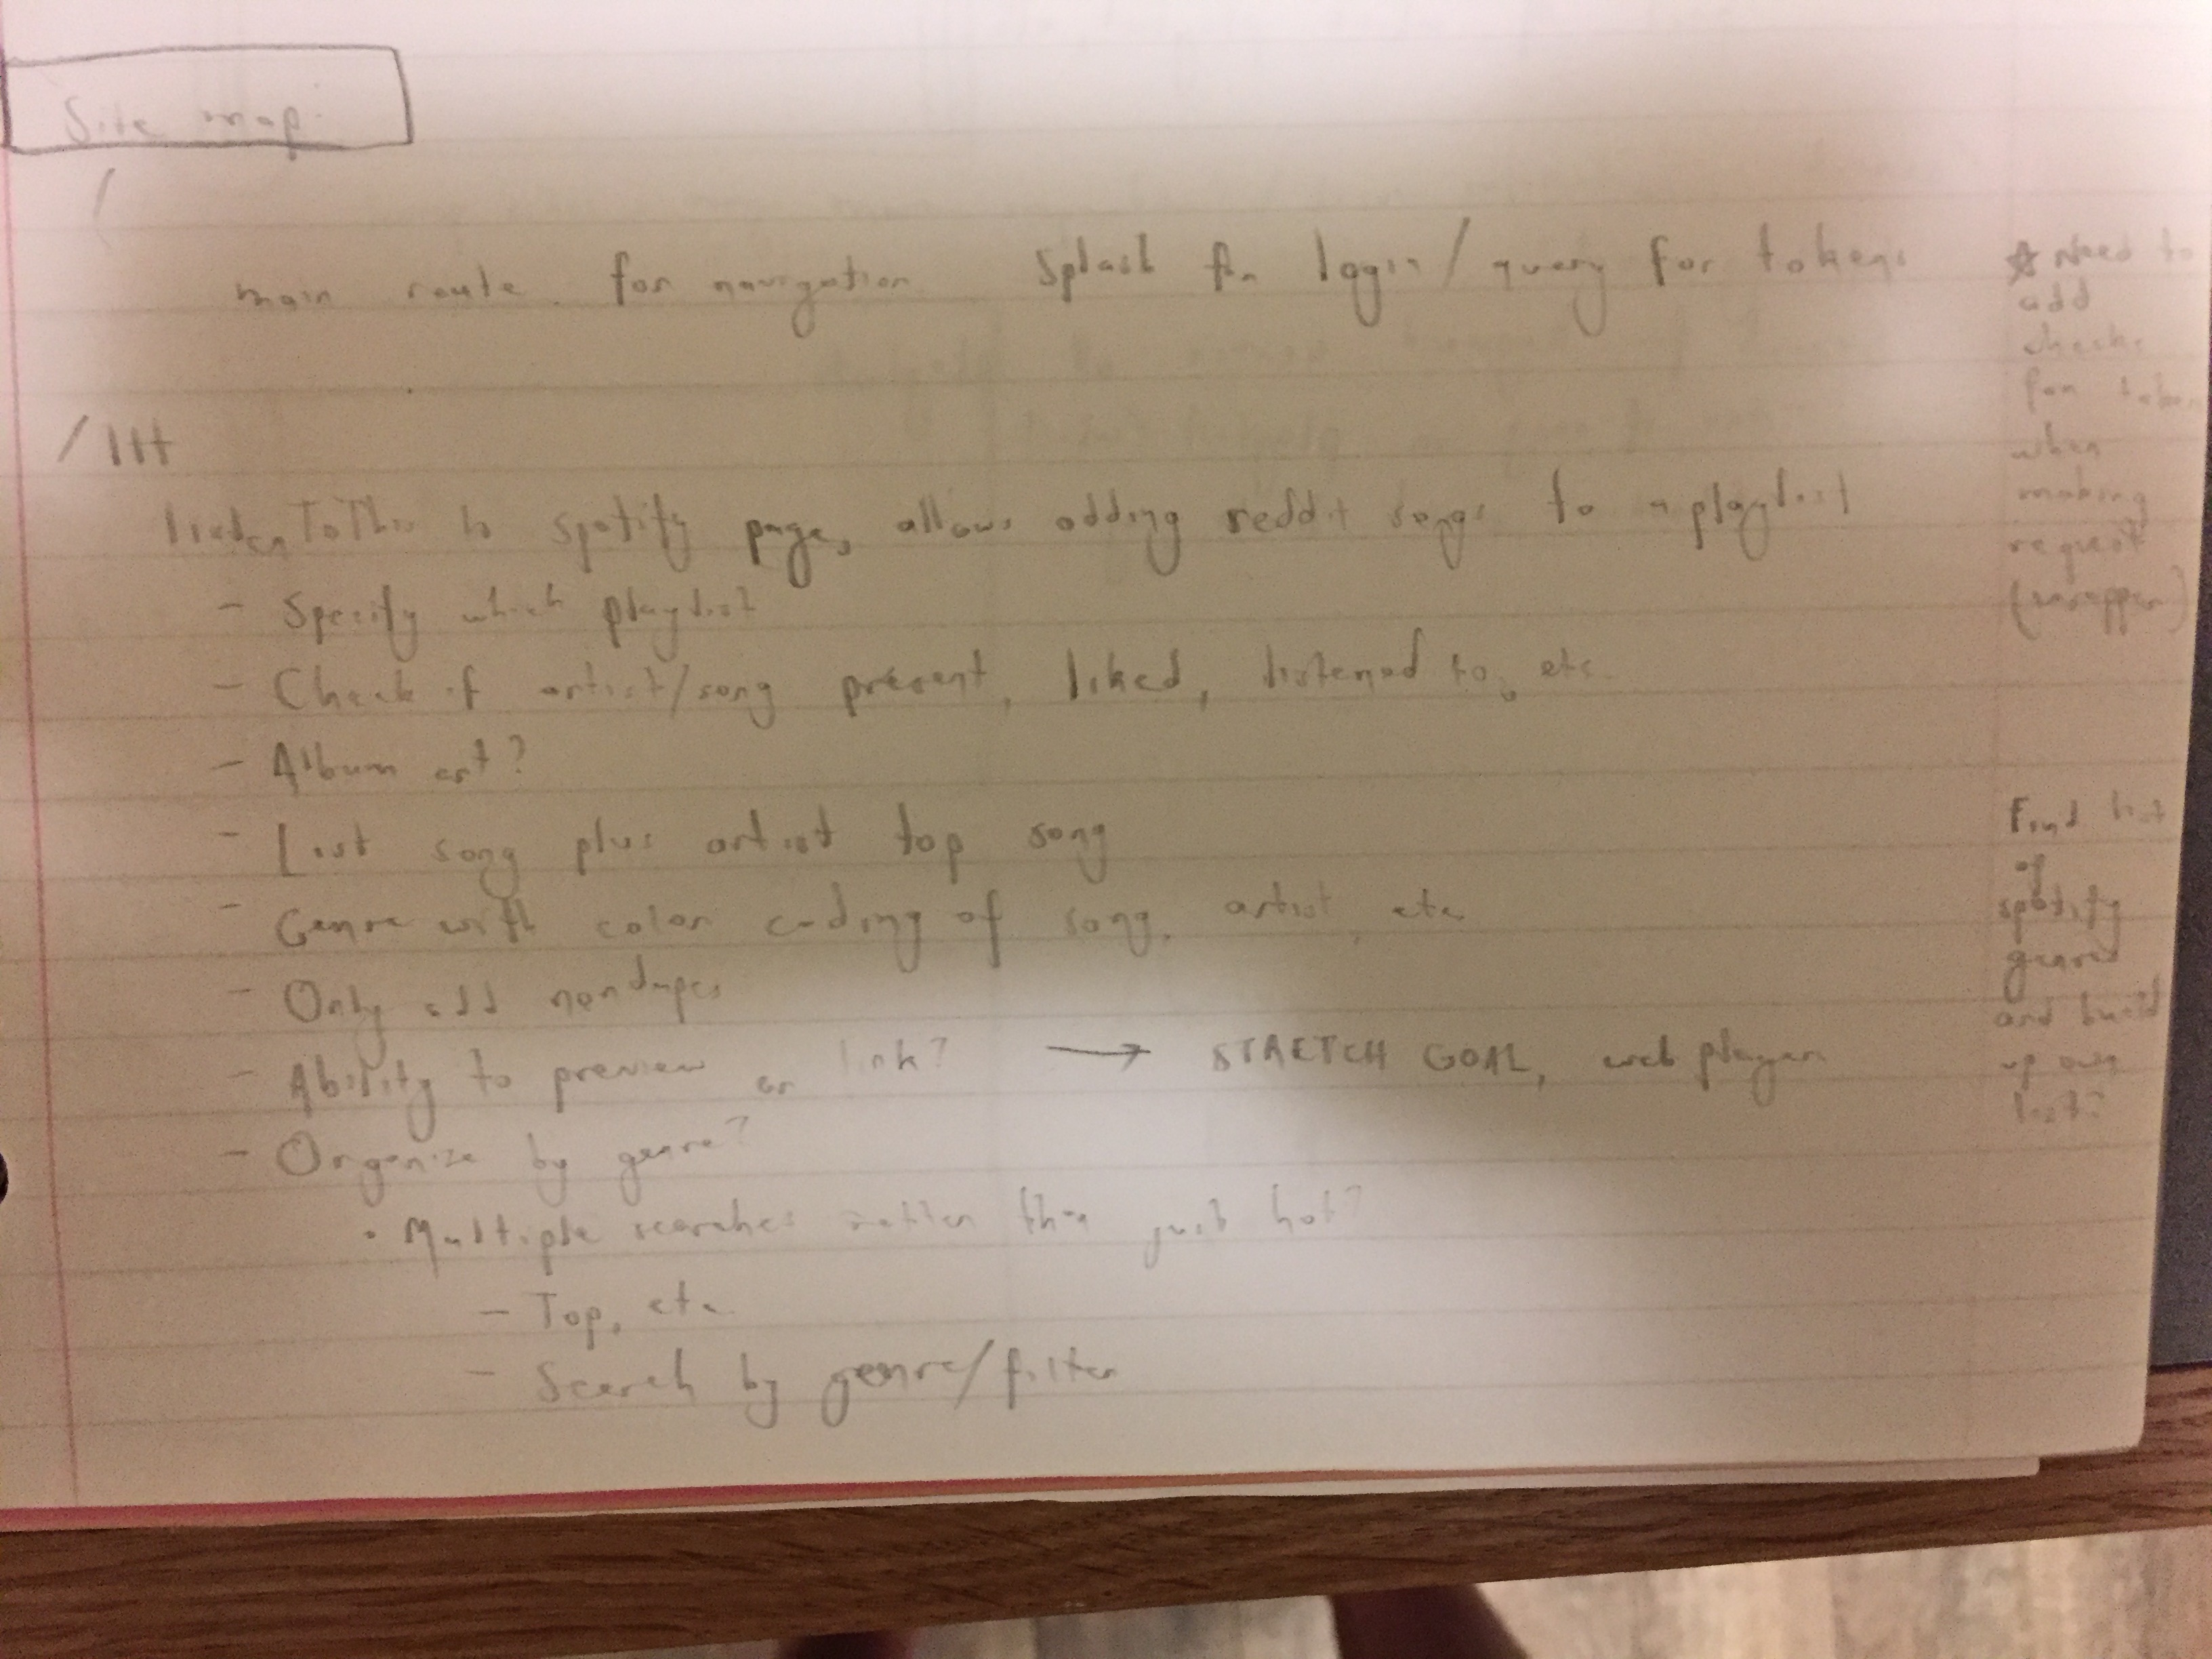 Site map:
/
main route for navigation Splash for login/query for tokens
/ltt
listenToThis to spotify page, allows adding reddit songs to a playlist
- Specify which playlist
- Check if artist/song present, liked, listened to, etc.
- Album art?
- List song plus artist top song
- Genre with color coding of song, artist, etc.
- Only add nondupes
- Ability to preview or link? → STRETCH GOAL, web player
- Organize by genre?
• Multiple searches rather than just hot?
- Top, etc.
- Search by genre/filter
☆ Need to
add
checks
for token
when
making
request
(wrapper)
Find list
of
spotify
genres
and build
up own
list?